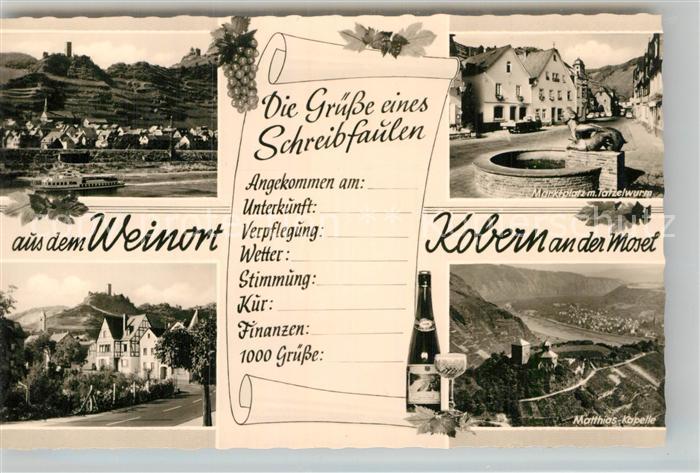 Die Grüße eines
Schreibfaulen
Angekommen am:
Unterkunft:
Verpflegung:
Wetter:
Stimmung:
Kur:
Finanzen:
1000 Grüße:
aus dem Weinort
Kobern an der Mosel
Marktplatz m. Tatzelwurm
Matthias-Kapelle